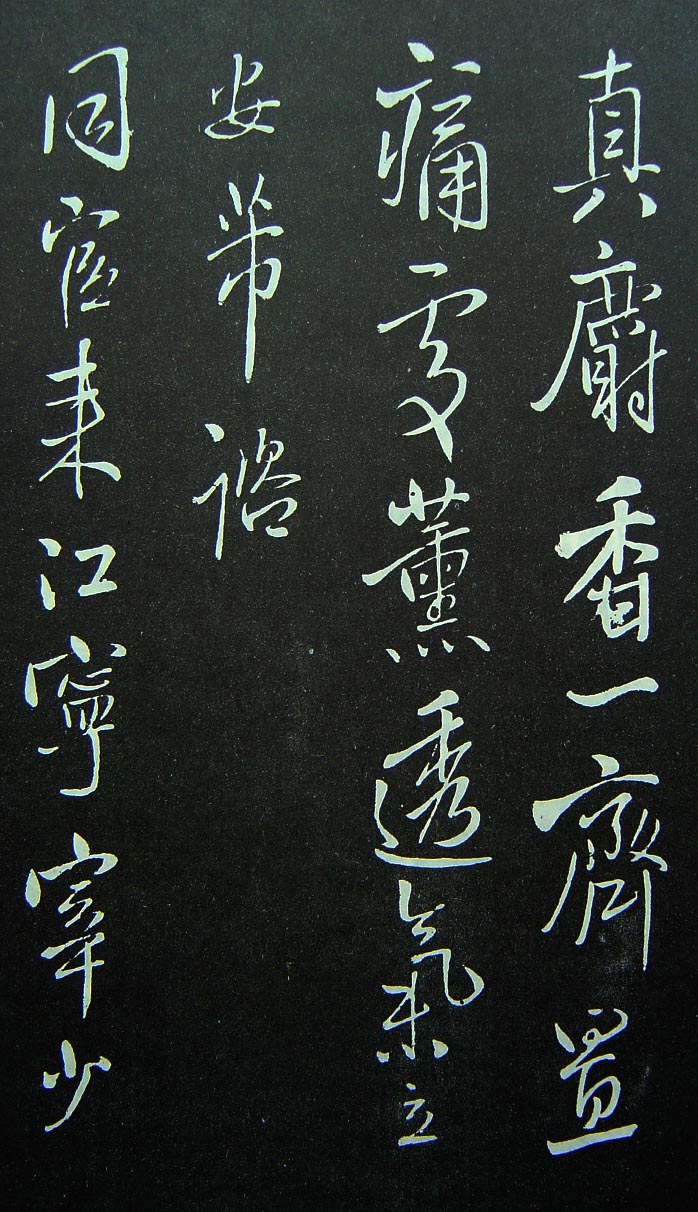 真麝香一齊置
痛處薰透氣立
安芾諮
同官来江寧宰少